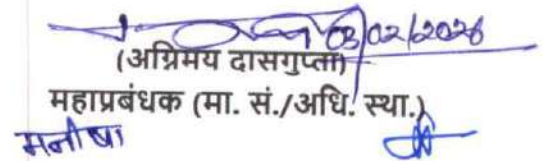 03/02/2026
(अग्रिमय दासगुप्ता)
महाप्रबंधक (मा. सं./अधि. स्था.)
मनीषा